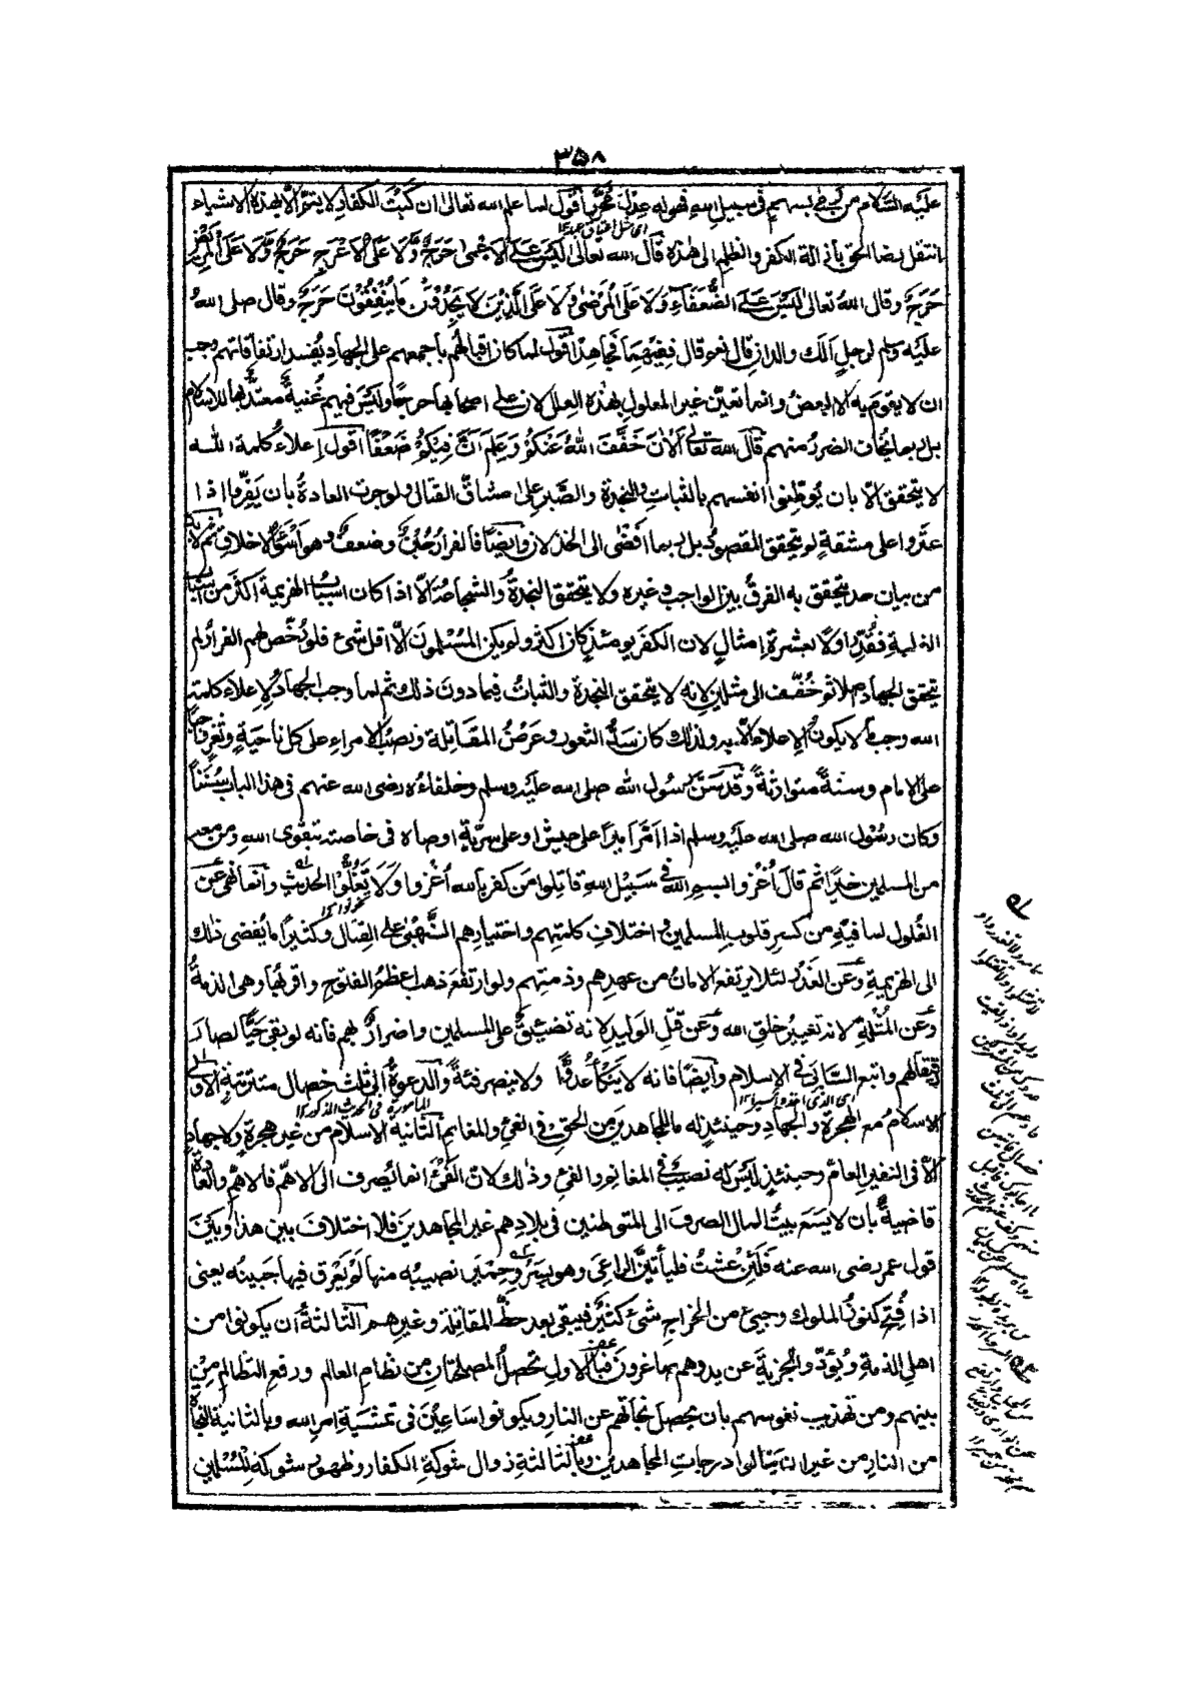 ۳۵۸
عليه السلام من رمى بسهم في سبيل الله فهو له عدل محرر اقول لما علم الله تعالى ان كبت الكفار لا يتم الا بهذه الاشياء
انتقل رضا الحق بازالة الكفر والظلم الى هذه قال الله تعالى لَيْسَ عَلَى الْاَعْمٰى حَرَجٌ وَّلَا عَلَى الْاَعْرَجِ حَرَجٌ وَّلَا عَلَى الْمَرِيْضِ
حَرَجٌ وقال الله تعالى لَيْسَ عَلَى الضُّعَفَآءِ وَلَا عَلَى الْمَرْضٰى وَلَا عَلَى الَّذِيْنَ لَا يَجِدُوْنَ مَا يُنْفِقُوْنَ حَرَجٌ وقال صلى الله
عليه وسلم لرجل الك والدان قال نعم قال ففيهما فجاهد اقول لما كان اقبالهم باجمعهم على الجهاد يفسد ارتفاقاتهم وجب
ان لا يقوم به الا البعض وانما تعين غير المعلول بهذه العلل لان على اصحابها حرجا وليس فيهم غنية معتد بها للاسلام
بل ربما يخاف الضرر منهم قال الله تعالى اَلْاٰنَ خَفَّفَ اللّٰهُ عَنْكُمْ وَعَلِمَ اَنَّ فِيْكُمْ ضَعْفًا اقول اعلاء كلمة الله
لا يتحقق الا بان يوطنوا انفسهم بالثبات والنجدة والصبر على مشاق القتال ولو جرت العادة بان يفروا اذا
عثروا على مشقة لم يتحقق المقصود بل ربما افضى الى الخذلان وايضا فالفرار جبن وضعف وهو اسوأ الاخلاق ثم لا بد
من بيان حد يتحقق به الفرق بين الواجب وغيره ولا يتحقق النجدة والشجاعة الا اذا كان اسباب الهزيمة اكثر من اسباب
الغلبة فقدر اولا بعشرة امثال لان الكفر يومئذ كان اكثر ولم يكن المسلمون الا اقل شيء فلو رخص لهم الفرار لم
يتحقق الجهاد اصلا ثم خفف الى مثلين لانه لا يتحقق النجدة والثبات فيما دون ذلك ثم لما وجب الجهاد لاعلاء كلمة
الله وجب ما لا يكون الاعلاء الا به ولذلك كان سد الثغور وعرض المقاتلة ونصب الامراء على كل ناحية وثغر واجبا
على الامام وسنة متوارثة وقد سن رسول الله صلى الله عليه وسلم وخلفاءه رضى الله عنهم في هذا الباب سننا
وكان رسول الله صلى الله عليه وسلم اذا امر اميرا على جيش او على سرية اوصاه في خاصته بتقوى الله ومن معه
من المسلمين خيرا ثم قال اغزوا بسم الله في سبيل الله قاتلوا من كفر بالله اغزوا ولا تغلوا الحديث وانما نهى عن
الغلول لما فيه من كسر قلوب المسلمين واختلاف كلمتهم واختيارهم النهبى على القتال وكثيرا ما يفضى ذلك
الى الهزيمة وعن الغدر لئلا يرتفع الامان من عهدهم وذمتهم ولو ارتفع ذهب اعظم الفتوح واقربها وهى الذمة
وعن المثلة لانه تغيير خلق الله وعن قتل الوليد لانه تضييق على المسلمين واضرار بهم فانه لو بقى حيا لصار
رقيقا لهم واتبع السابى في الاسلام وايضا فانه لا ينكأ عدوا ولا ينصر فئة والدعوة الى ثلث خصال مترتبة الاولى
الاسلام مع الهجرة والجهاد وحينئذ له ما للمجاهدين من الحق في الفيء والمغانم الثانية الاسلام من غير هجرة ولا جهاد
الا في النفير العام وحينئذ ليس له نصيب في المغانم والفيء وذلك لان الفيء انما يصرف الى الاهم فالاهم والعادة
قاضية بان لا يسع بيت المال الصرف الى المتوطنين في بلادهم غير المجاهدين فلا اختلاف بين هذا وبين
قول عمر رضى الله عنه فلئن عشت فليأتين الراعى وهو بسرو حمير نصيبه منها لم يعرق فيها جبينه يعنى
اذا فتح كنوز الملوك وجبى من الخراج شيء كثير فيبقى بعد حظ المقاتلة وغيرهم الثالثة ان يكونوا من
اهل الذمة ويؤدوا الجزية عن يد وهم صاغرون فبالاولى تحصل المصلحتان من نظام العالم ورفع التظالم من
بينهم ومن تهذيب نفوسهم بان يحصل نجاتهم عن النار ويكونوا ساعين في تمشية امر الله وبالثانية النجاة
من النار من غير ان ينالوا درجات المجاهدين وبالثالثة زوال شوكة الكفار وظهور شوكة المسلمين